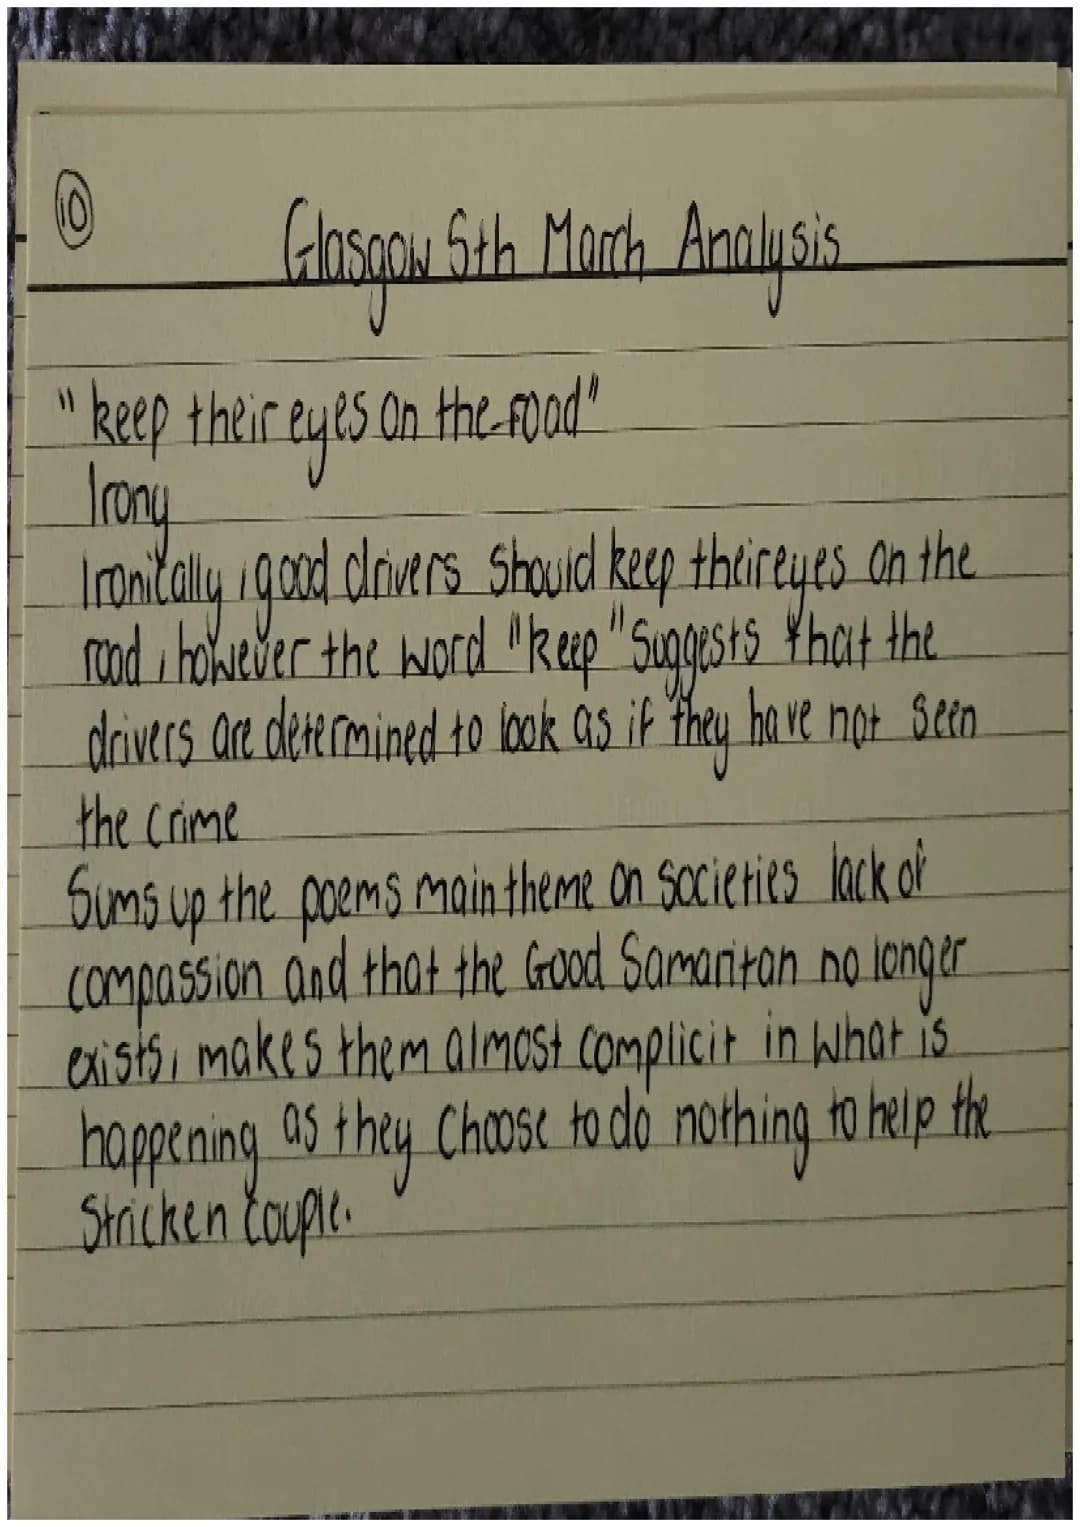 10
Glasgow 5th March Analysis
"keep their eyes on the road"
Irony
Ironically, good drivers should keep their eyes on the
road, however the word "keep" suggests that the
drivers are determined to look as if they have not seen
the crime
Sums up the poems main theme on societies lack of
compassion and that the Good Samaritan no longer
exists, makes them almost complicit in what is
happening as they choose to do nothing to help the
Stricken couple.